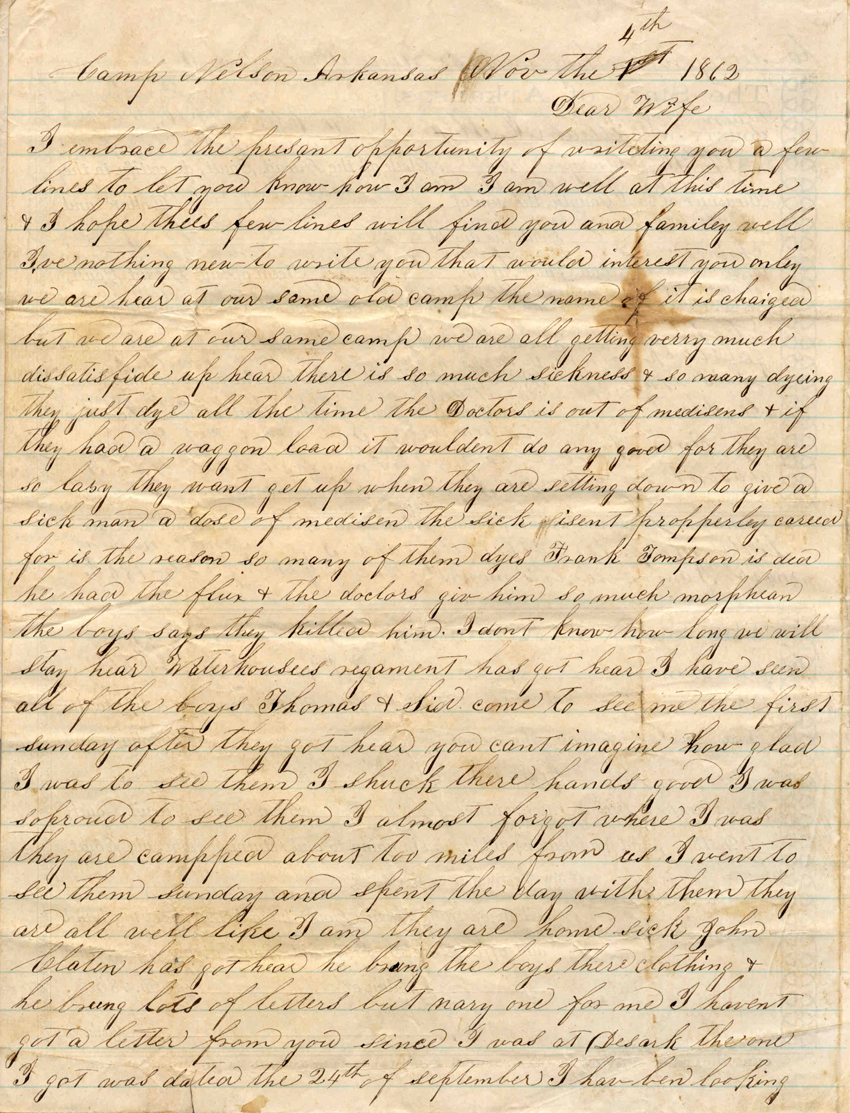 Camp Nelson Arkansas Nov the 4th 1862
Dear Wife
I embrace the presant opportunity of writeting you a few
lines to let you know how I am I am well at this time
& I hope thees few lines will find you and familey well
I,ve nothing new to write you that would interest you onley
we are hear at our same old camp the name of it is chaiged
but we are at our same camp we are all getting verry much
dissatisfide up hear there is so much sickness & so many dyeing
they just dye all the time the Doctors is out of medisens & if
they had a waggon load it wouldent do any good for they are
so lasy they want get up when they are setting down to give a
sick man a dose of medisen the sick isent propperley careed
for is the reason so many of them dyes Frank Tompson is dead
he had the flux & the doctors giv him so much morphean
the boys says they killed him. I dont know how long we will
stay hear Waterhousees regament has got hear I have seen
all of the boys Thomas & Sid come to see me the first
sunday after they got hear you cant imagine how glad
I was to see them I shuck there hands good I was
soproud to see them I almost forgot where I was
they are campped about too miles from us I went to
see them sunday and spent the day with them they
are all well like I am they are home sick John
Claten has got hear he brung the boys there clothing &
he brung lots of letters but nary one for me I havent
got a letter from you since I was at Desark the one
I got was dated the 24th of september I hav ben looking